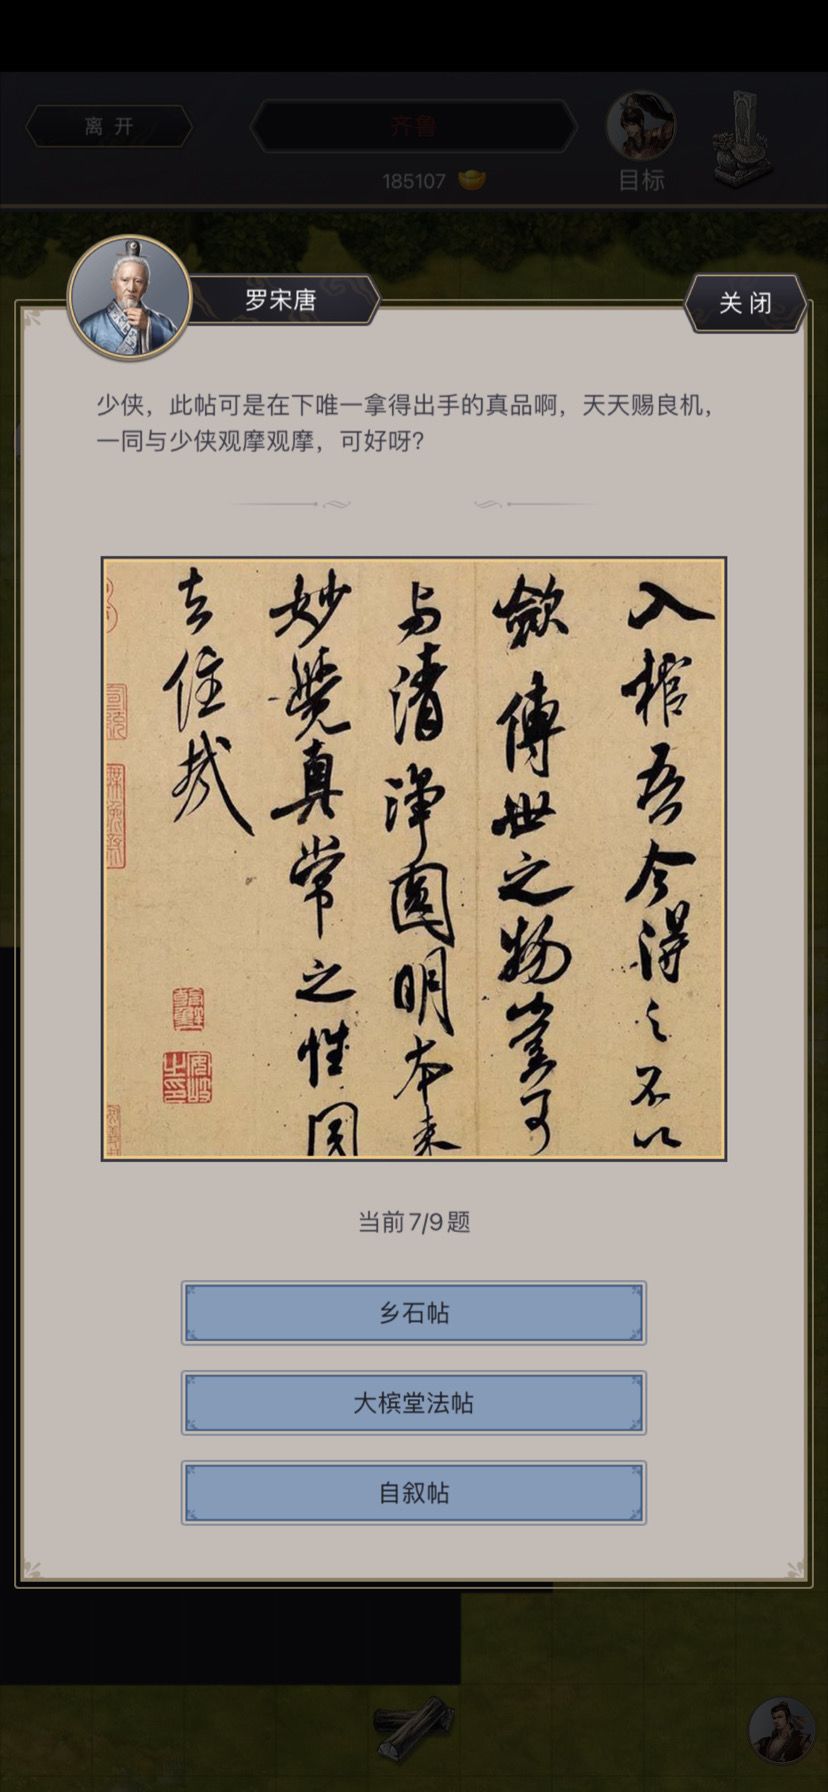 离开
齐鲁
185107
目标
罗宋唐
关闭
少侠，此帖可是在下唯一拿得出手的真品啊，天天赐良机，
一同与少侠观摩观摩，可好呀？
入棺吾今得之不以
斂傳世之物豈可
与清浄圓明本来
妙覺真常之性同
去住哉
当前7/9题
乡石帖
大槟堂法帖
自叙帖